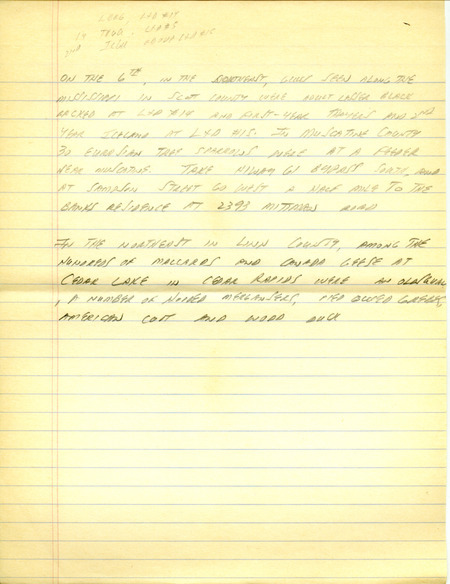 LBBG, L+D #14
1Y THGU, L+D #15
2nd ICGU
ON THE 6TH, IN THE SOUTHEAST, GULLS SEEN ALONG THE
MISSISSIPPI IN SCOTT COUNTY WERE ADULT LESSER BLACK
BACKED AT L+D #14 AND FIRST-YEAR THAYER'S AND 2nd
YEAR ICELAND AT L+D #15. IN MUSCATINE COUNTY
30 EURASIAN TREE SPARROWS WERE AT A FEEDER
NEAR MUSCATINE. TAKE HIWAY 61 BYPASS SOUTH, AND
AT SAMPSON STREET GO WEST A HALF MILE TO THE
BANKS RESIDENCE AT 2393 ROAD
IN THE NORTHEAST IN LINN COUNTY, AMONG THE
HUNDREDS OF MALLARDS AND CANADA GEESE AT
CEDAR LAKE IN CEDAR RAPIDS WERE AN OLDSQUAW
, A NUMBER OF HOODED MERGANSERS, PIED BILLED GREBE,
AMERICAN COOT AND WOOD DUCK